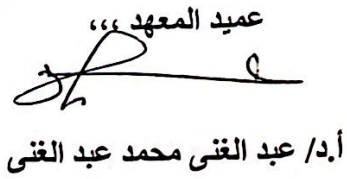 عميد المعهد ،،،
أ.د/ عبد الغنى محمد عبد الغنى